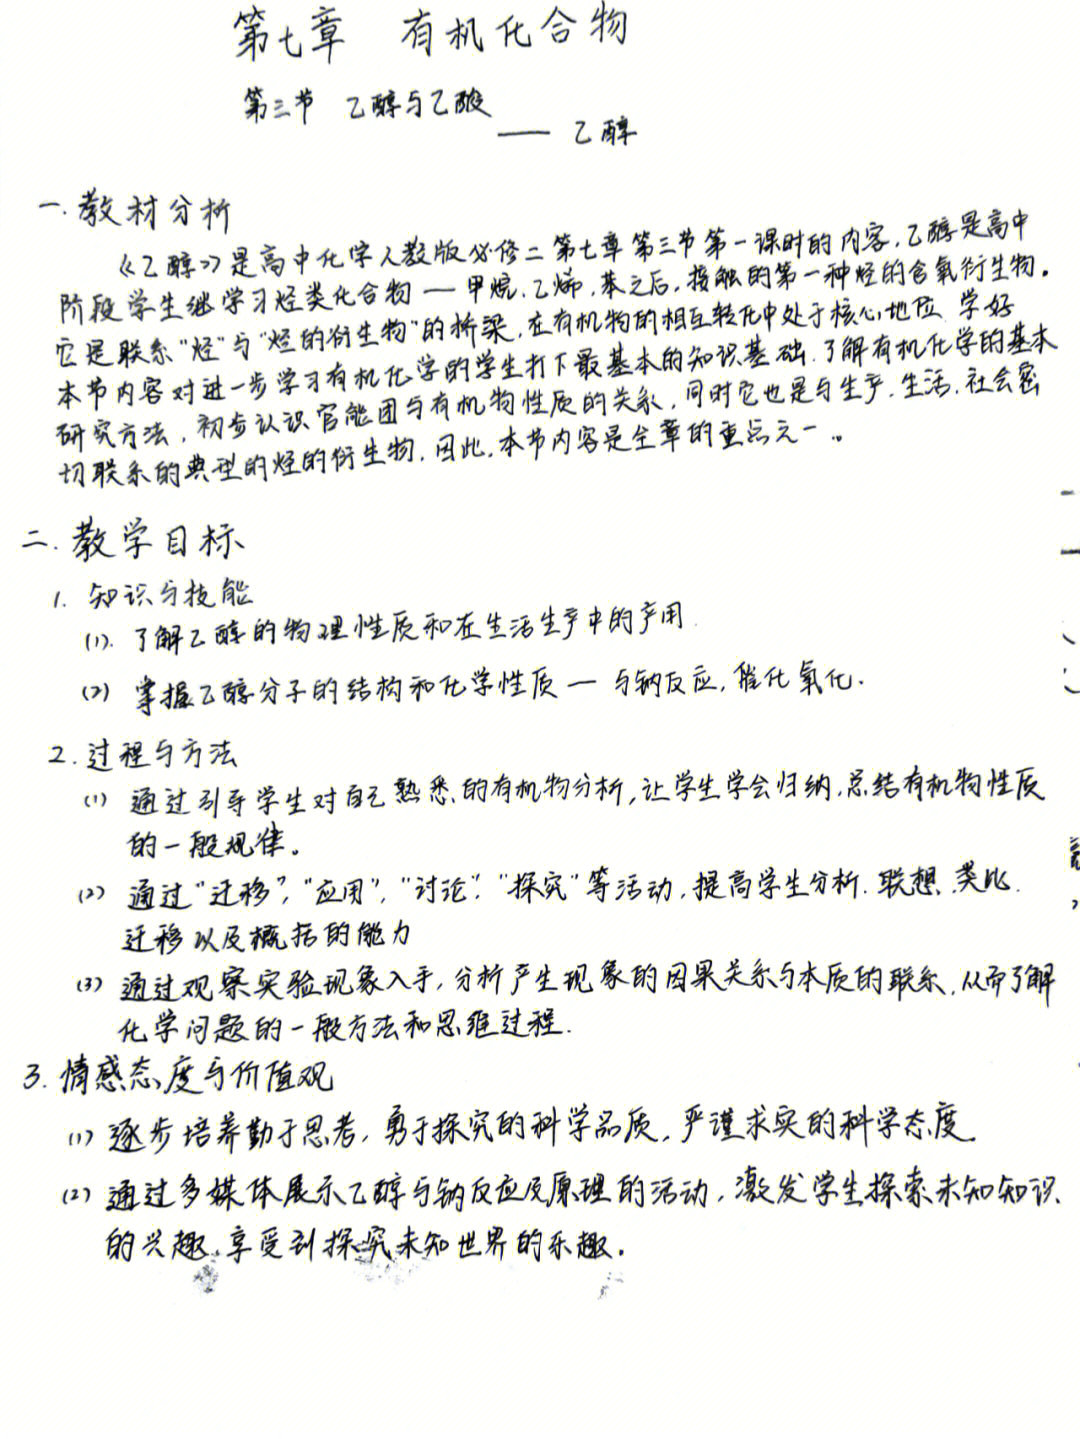 第七章 有机化合物
第三节 乙醇与乙酸
—— 乙醇
一.教材分析
《乙醇》是高中化学人教版必修二第七章第三节第一课时的内容,乙醇是高中
阶段学生继学习烃类化合物—甲烷.乙烯.苯之后,接触的第一种烃的含氧衍生物。
它是联系"烃"与"烃的衍生物"的桥梁,在有机物的相互转化中处于核心地位 学好
本节内容对进一步学习有机化学的学生打下最基本的知识基础.了解有机化学的基本
研究方法,初步认识官能团与有机物性质的关系,同时它也是与生产.生活.社会密
切联系的典型的烃的衍生物.因此,本节内容是全章的重点之一。
二.教学目标
1. 知识与技能
(1). 了解乙醇的物理性质和在生活生产中的产用.
(2) 掌握乙醇分子的结构和化学性质—与钠反应,催化氧化.
2.过程与方法
(1) 通过引导学生对自己熟悉的有机物分析,让学生学会归纳.总结有机物性质
的一般规律。
(2) 通过"迁移","应用","讨论","探究"等活动,提高学生分析.联想.类比.
迁移以及概括的能力
(3) 通过观察实验现象入手,分析产生现象的因果关系与本质的联系,从而了解
化学问题的一般方法和思维过程.
3.情感态度与价值观
(1) 逐步培养勤于思考,勇于探究的科学品质,严谨求实的科学态度.
(2) 通过多媒体展示乙醇与钠反应及原理的活动,激发学生探索未知知识
的兴趣.享受到探究未知世界的乐趣。